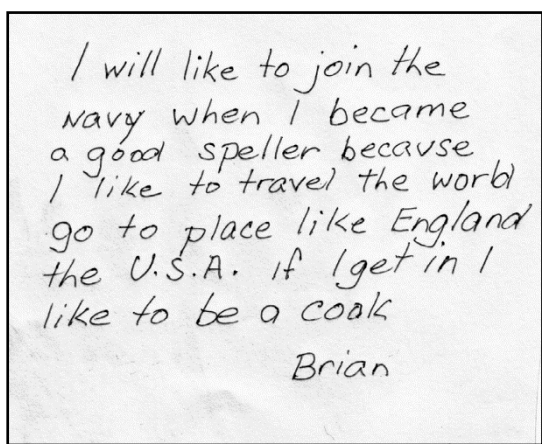 I will like to join the
Navy when I became
a good speller because
I like to travel the world
go to place like England
the U.S.A. if I get in I
like to be a coak
Brian